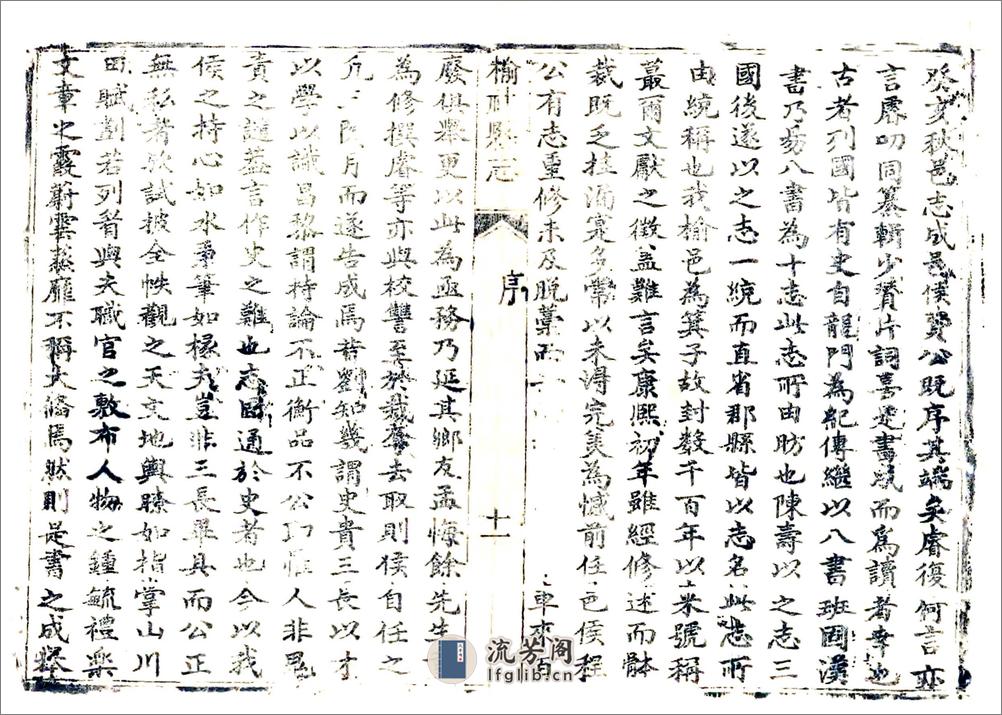 癸亥秋邑志成邑侯費公既序其端矣睿復何言亦
言睿叨同纂輯少贊片詞喜是書成而為讀者幸也
古者列國皆有史自龍門為紀傳繼以八書班固漢
書乃易八書為十志此志所由昉也陳壽以之志三
國後遂以之志一統而直省郡縣皆以志名此志所
由統稱也我榆邑為箕子故封數千百年以來號稱
蕞爾文獻之徵蓋難言矣康熙初年雖經修述而體
裁既乏挂漏寔多常以未得完美為憾前任邑侯程
公有志重修未及脫藁而 車來
榆社縣志
序
十一
廢俱舉更以此為亟務乃延其鄉友孟悔餘先生
為修撰睿等亦與校讐至於裁奪去取則侯自任之
凡三閱月而遂告成焉昔劉知幾謂史貴三長以才
以學以識昌黎謂持論不正衡品不公 人非鬼
責之譴蓋言作史之難也志固通於史者也今以我
侯之持心如水秉筆如椽夫豈非三長畢具而公正
無私者歟試披全帙觀之天文地輿瞭如指掌山川
田賦劃若列眉與夫職官之敷布人物之鍾毓禮樂
文章之霞蔚雲蒸靡不稱大備焉然則是書之成
流芳阁
lfglib.cn